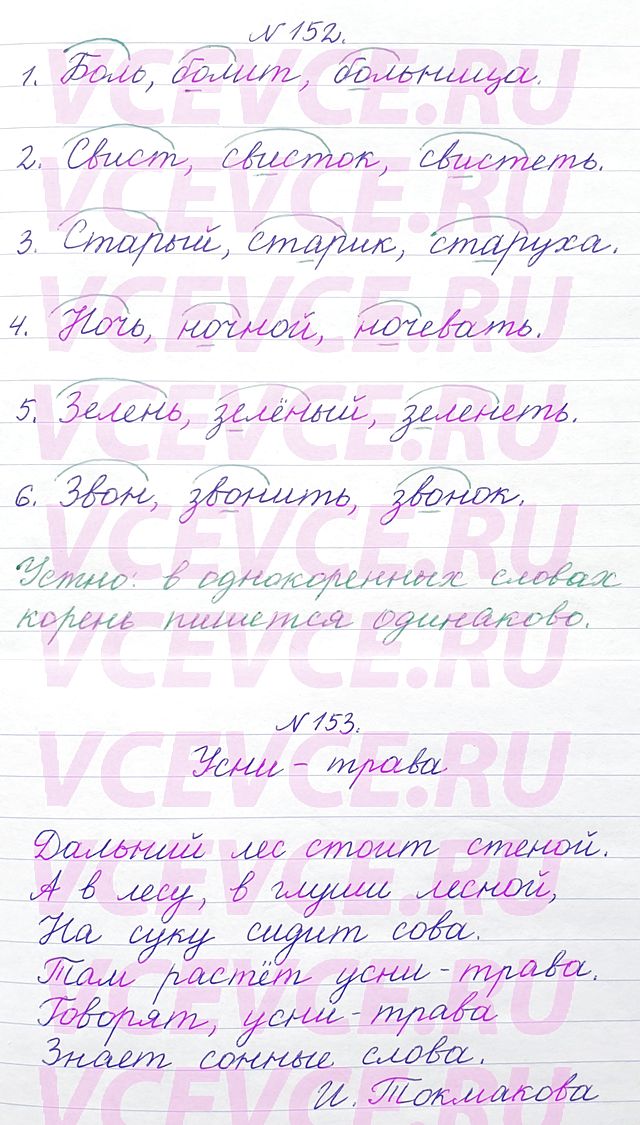 N 152.
1. Боль, болит, больница.
2. Свист, свисток, свистеть.
3. Старый, старик, старуха.
4. Ночь, ночной, ночевать.
5. Зелень, зелёный, зеленеть.
6. Звон, звонить, звонок.
Устно: в однокоренных словах
корень пишется одинаково.
N 153.
Усни - трава
Дальний лес стоит стеной.
А в лесу, в глуши лесной,
На суку сидит сова.
Там растёт усни - трава.
Говорят, усни - трава
Знает сонные слова.
И. Токмакова
VCEVCE.RU
VCEVCE.RU
VCEVCE.RU
VCEVCE.RU
VCEVCE.RU
VCEVCE.RU
VCEVCE.RU
VCEVCE.RU
VCEVCE.RU
VCEVCE.RU